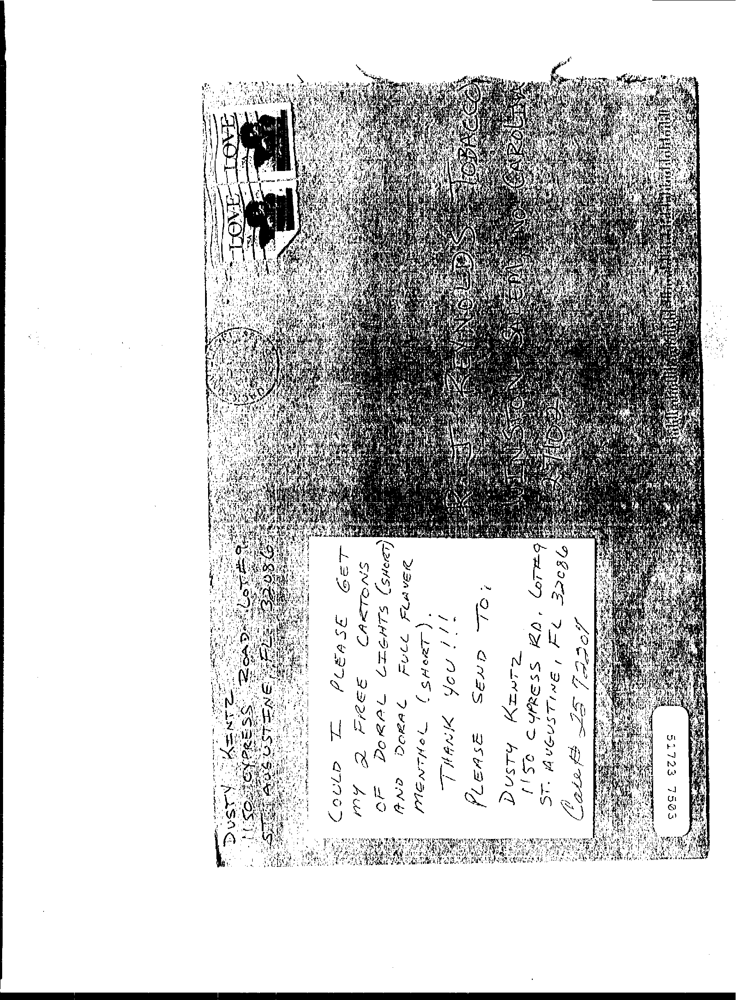 DUSTY KINTZ
1150 CYPRESS ROAD. LOT#9
ST. AUGUSTINE, FL. 32086
LOVE LOVE
R. J. REYNOLDS TOBACCO
WINSTON SALEM, NO. CAROLINA
27102
COULD I PLEASE GET
MY 2 FREE CARTONS
OF DORAL LIGHTS (SHORT)
AND DORAL FULL FLAVER
MENTHOL (SHORT).
THANK YOU!!!
PLEASE SEND TO:
DUSTY KINTZ
1150 CYPRESS RD. LOT#9
ST. AUGUSTINE, FL 32086
Case# 2572204
51723 7503